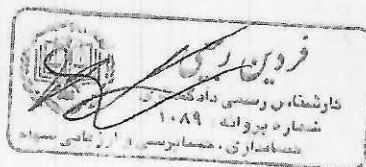 فردین ر
کارشناس رسمی دادگستری
شماره پروانه ۱۰۸۹
حسابداری، حسابرسی و ارزیابی سهام